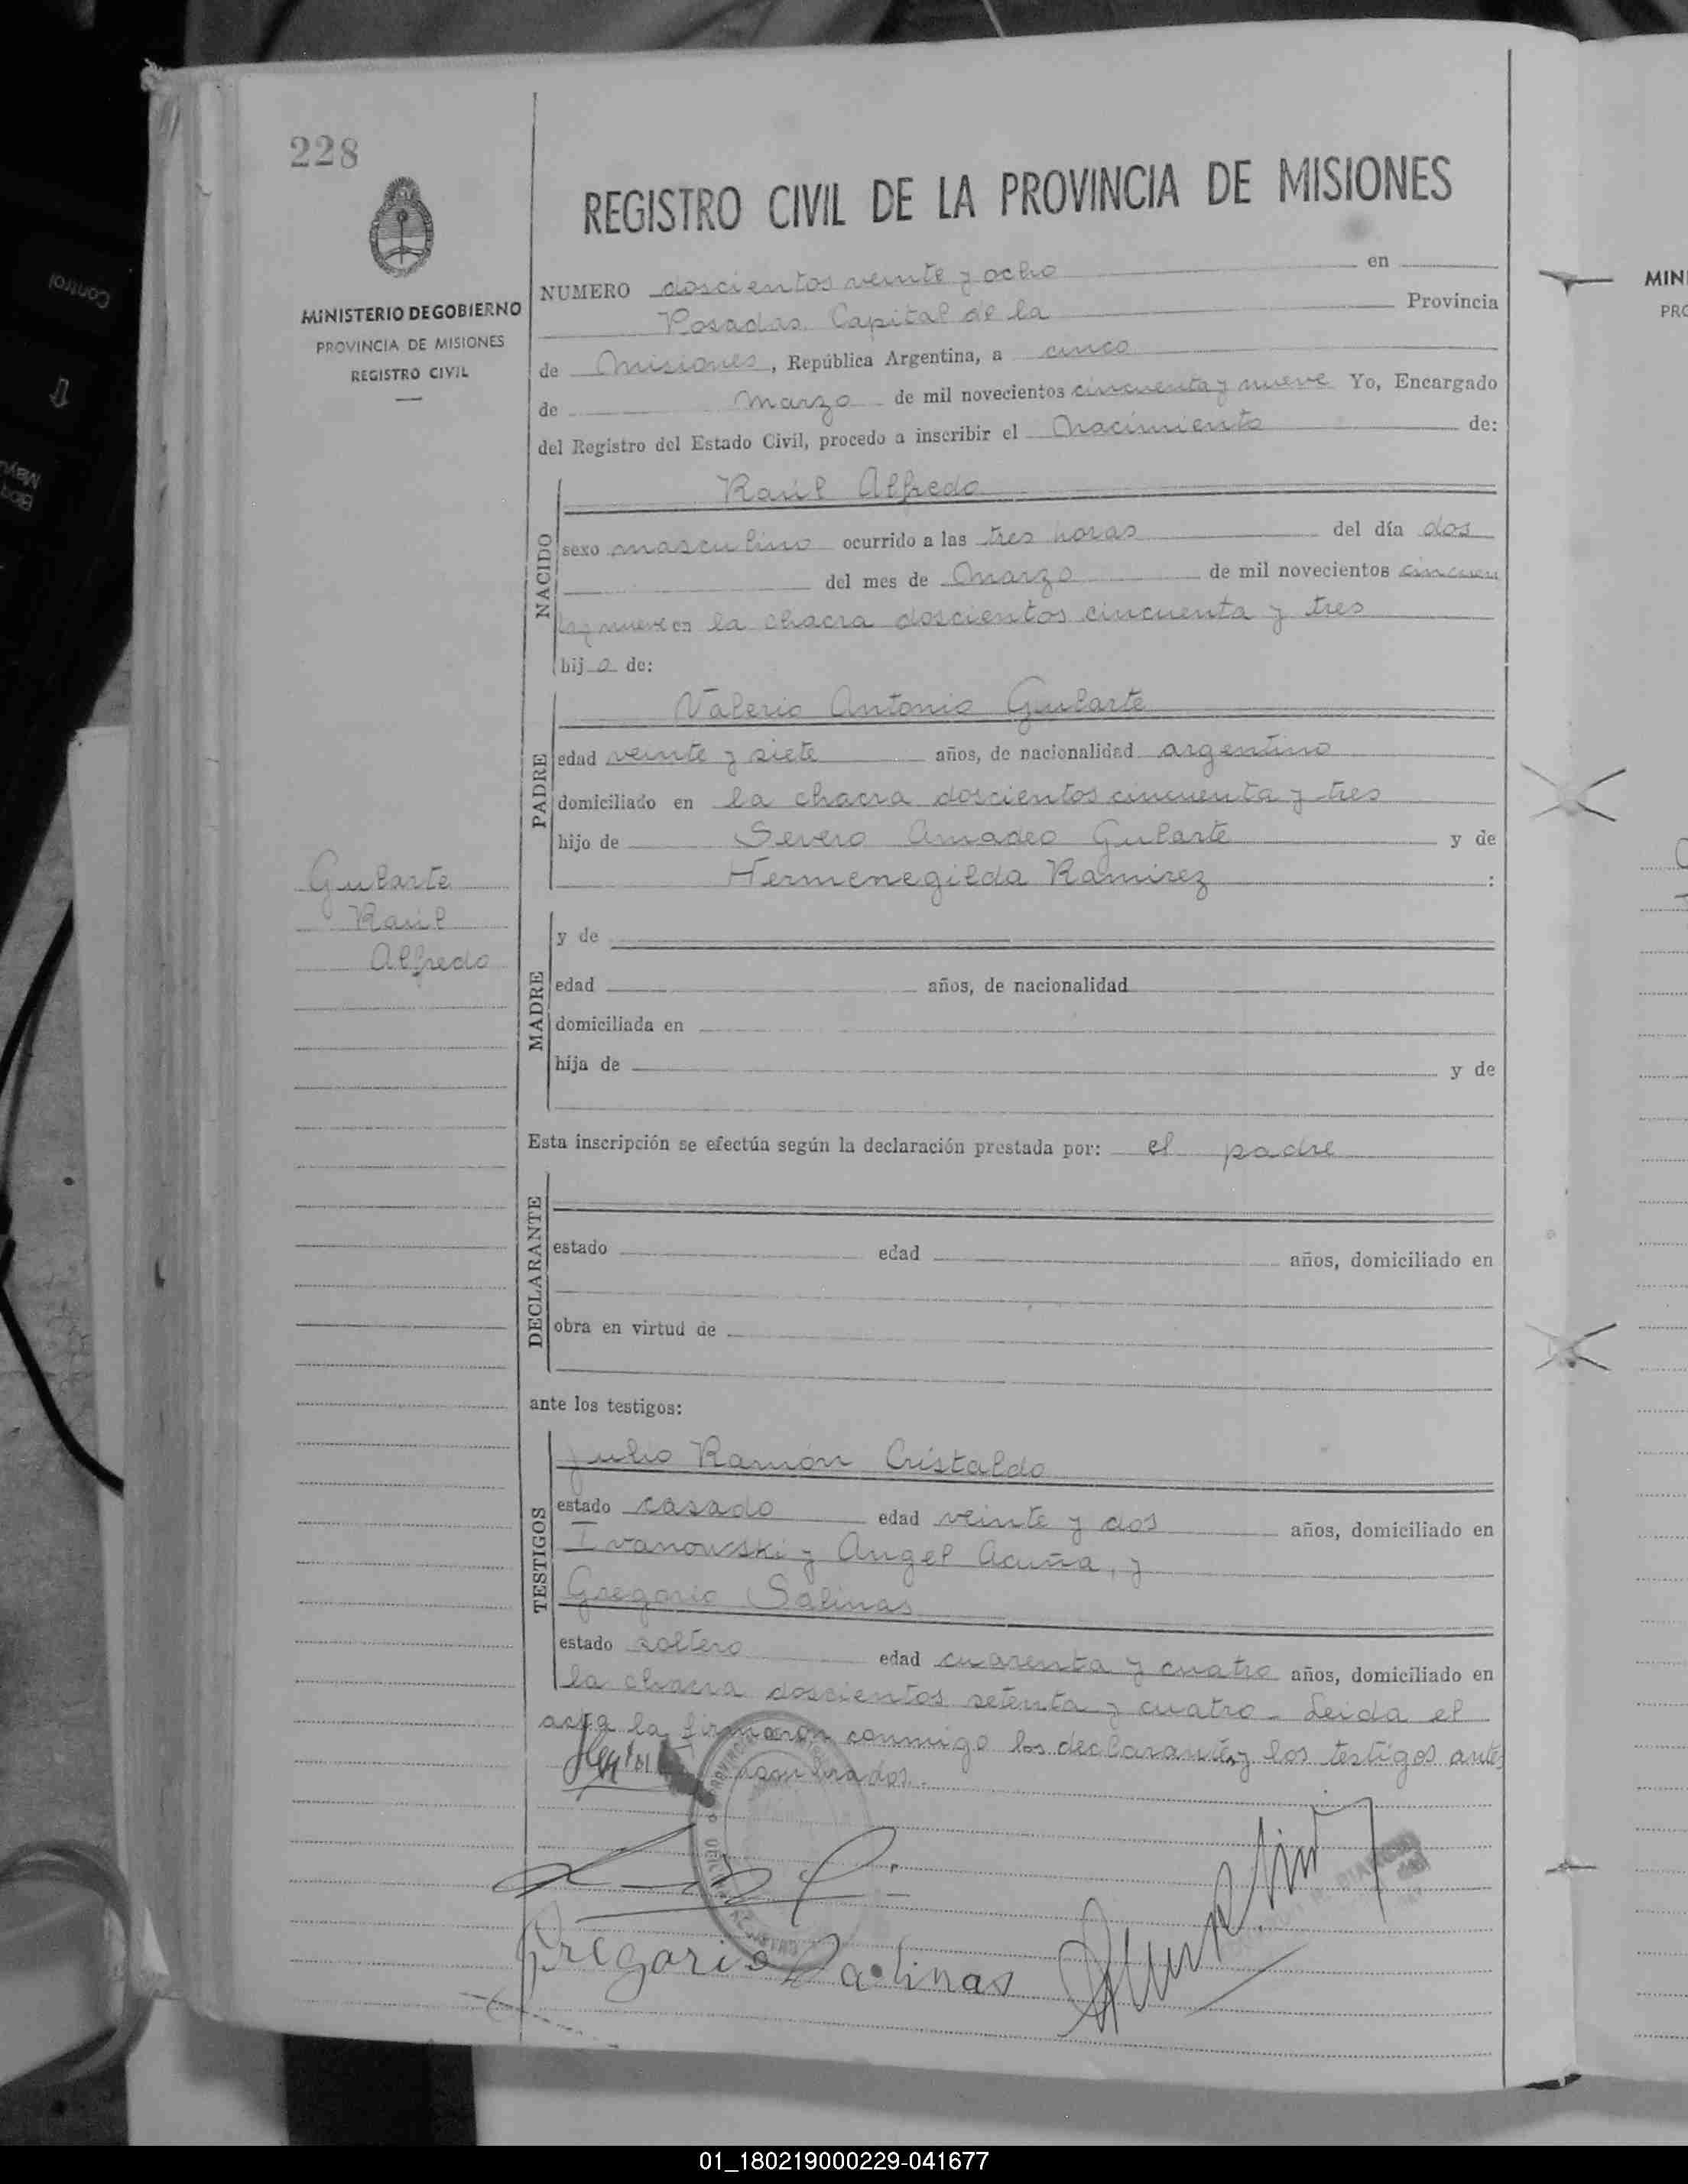 228
REGISTRO CIVIL DE LA PROVINCIA DE MISIONES
MINISTERIO DE GOBIERNO
PROVINCIA DE MISIONES
REGISTRO CIVIL
NUMERO doscientos veinte y ocho en
Posadas Capital de la Provincia
de Misiones, República Argentina, a cinco
de marzo de mil novecientos cincuenta y nueve Yo, Encargado
del Registro del Estado Civil, procedo a inscribir el Nacimiento de:
NACIDO
Raúl Alfredo
sexo masculino ocurrido a las tres horas del día dos
del mes de Marzo de mil novecientos cincuen
ta y nueve en la chacra doscientos cincuenta y tres
hijo de:
PADRE
Valerio Antonio Gularte
edad veinte y siete años, de nacionalidad argentino
domiciliado en la chacra doscientos cincuenta y tres
hijo de Severo Amadeo Gularte y de
Hermenegilda Ramirez :
Gularte
Raúl
Alfredo
MADRE
y de
edad años, de nacionalidad
domiciliada en
hija de y de
Esta inscripción se efectúa según la declaración prestada por: el padre
DECLARANTE
estado edad años, domiciliado en
obra en virtud de
ante los testigos:
TESTIGOS
Julio Ramón Cristaldo
estado casado edad veinte y dos años, domiciliado en
Ivanowski y Angel Acuña, y
Gregorio Salinas
estado soltero edad cuarenta y cuatro años, domiciliado en
la chacra doscientos setenta y cuatro - Leida el
acta la firmaron conmigo los declarantes y los testigos antes
nombrados.-
Gregorio Salinas
Control
Bloq
Mayús
MINI
PRO
01_180219000229-041677